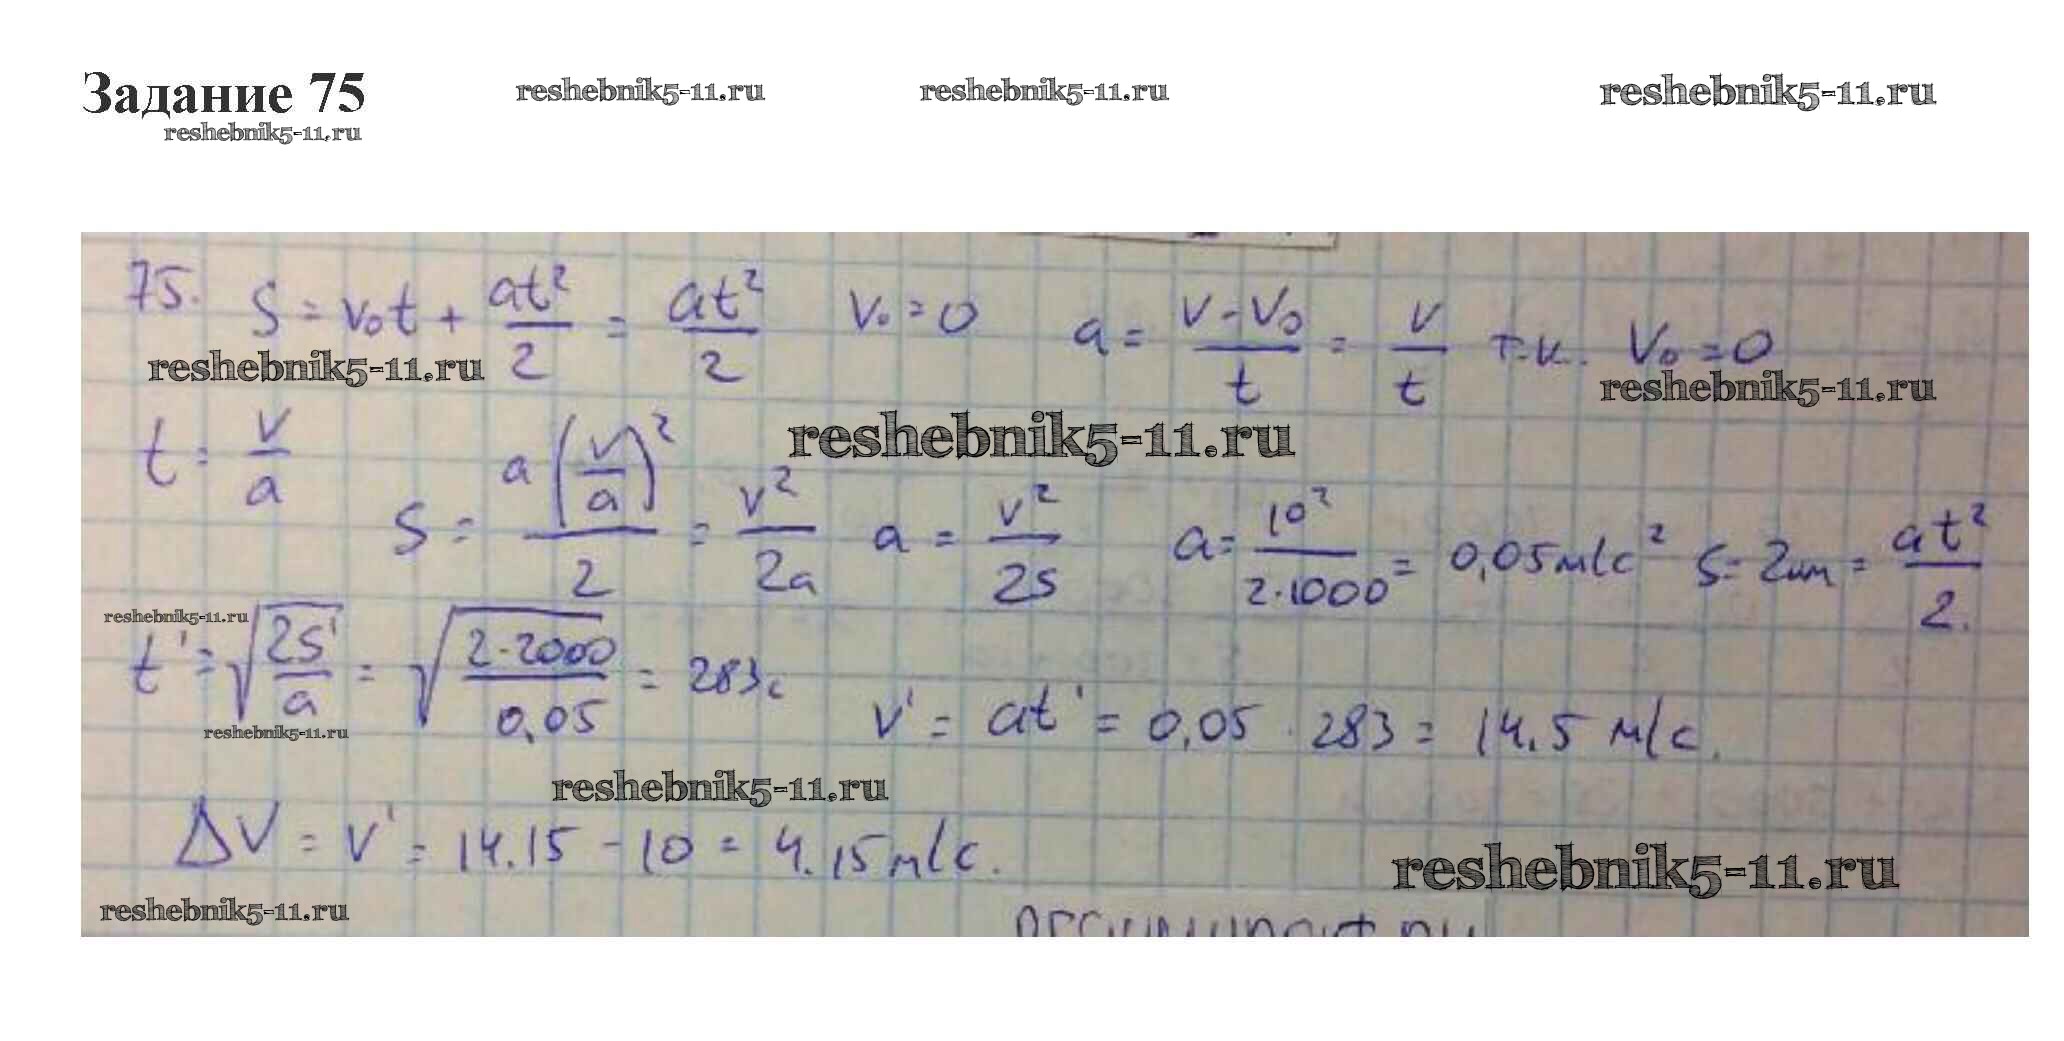 Задание 75 reshebnik5-11.ru reshebnik5-11.ru reshebnik5-11.ru
reshebnik5-11.ru
75. S = v₀t + at²/2 = at²/2 V₀ = 0 a = (v - v₀)/t = v/t т.к. V₀ = 0
reshebnik5-11.ru reshebnik5-11.ru
t = v/a reshebnik5-11.ru
S = a(v/a)²/2 = v²/2a a = v²/2s a = 10²/2·1000 = 0,05 м/с² S = 2км = at²/2.
reshebnik5-11.ru
t' = √(2S'/a) = √(2·2000/0,05) = 283с v' = at' = 0,05 · 283 = 14.5 м/с.
reshebnik5-11.ru
reshebnik5-11.ru
ΔV = v' = 14.15 - 10 = 4.15 м/с.
reshebnik5-11.ru
reshebnik5-11.ru